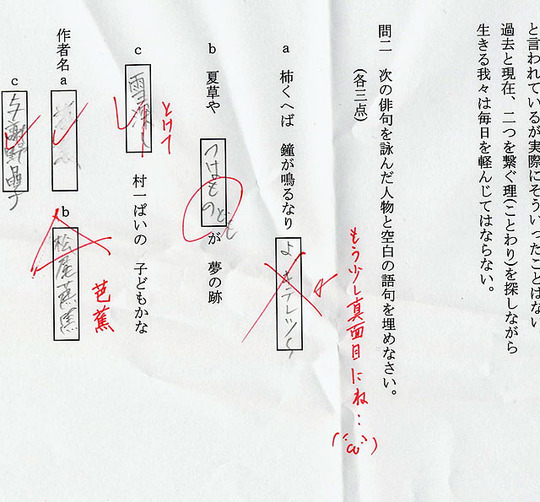 と言われているが実際にそういったことはない
過去と現在、二つを繋ぐ理(ことわり)を探しながら
生きる我々は毎日を軽んじてはならない。
問二 次の俳句を詠んだ人物と空白の語句を埋めなさい。
(各三点)
もう少し真面目にね…
a 柿くへば 鐘が鳴るなり
よ キテレツ
b 夏草や つはものども が 夢の跡
c 雪 村一ぱいの 子どもかな
とけて
作者名 a
b 松尾芭蕉
芭蕉
c 与謝野晶子